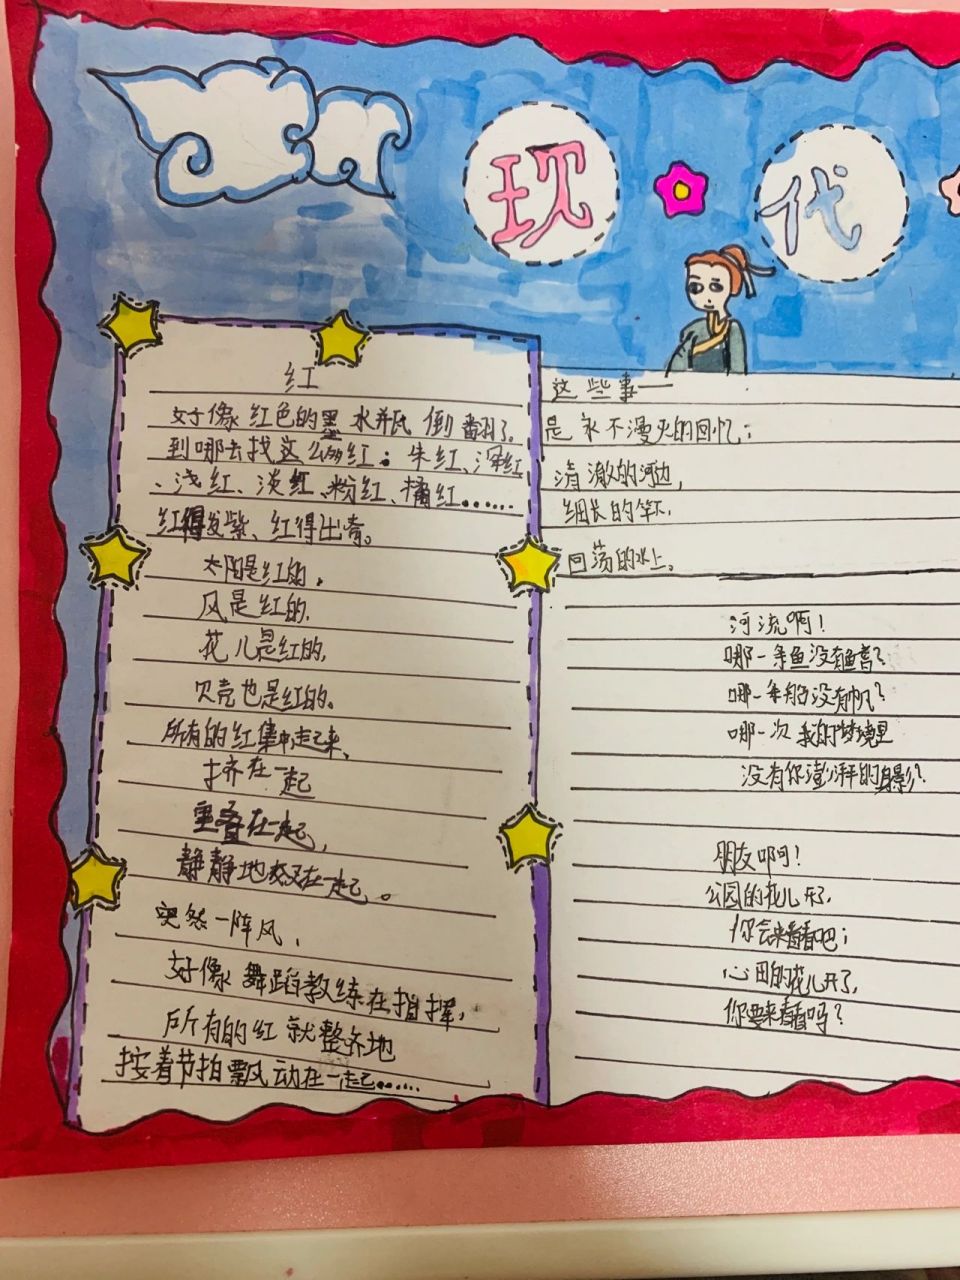 现代
红
好像红色的墨水并瓦倒翻了。
到哪去找这么多红：朱红、深红
、浅红、淡红、粉红、橘红……
红得发紫、红得出奇。
太阳是红的，
风是红的，
花儿是红的，
贝壳也是红的。
所有的红集中起来，
挤在一起
重叠在一起，
静静地杈在一起。
突然一阵风，
好像舞蹈教练在指挥，
所有的红就整齐地
按着节拍飘动在一起……
这些事——
是永不漫灭的回忆；
清澈的河边，
细长的竿下，
回荡的水上。
河流啊！
哪一条鱼没有鱼鳍？
哪一条船没有帆？
哪一次我的梦境里
没有你澎湃的身影？
朋友啊！
公园的花儿开了，
你会来看看吧；
心田的花儿开了，
你要来看看吗？